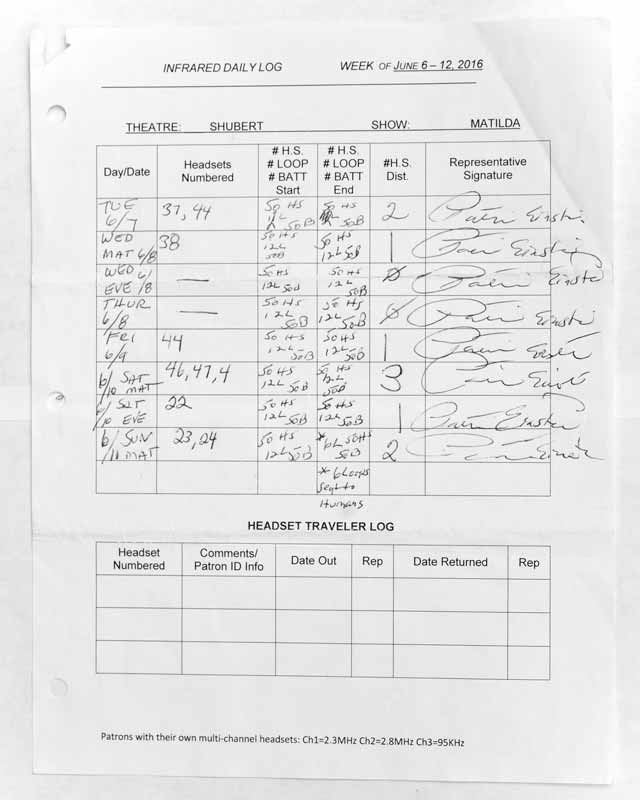 INFRARED DAILY LOG WEEK OF JUNE 6 – 12, 2016
THEATRE: SHUBERT SHOW: MATILDA
Day/Date Headsets Numbered # H.S. # LOOP # BATT Start # H.S. # LOOP # BATT End #H.S. Dist. Representative Signature
TUE 6/7 37, 44 50 HS 12L 50B 50 HS 50B 2
WED MAT 6/8 38 50 HS 12L 50B 50 HS 12L 50B 1
WED EVE 6/8 — 50HS 12L 50B 50HS 12L 50B 0
THUR 6/8 — 50 HS 12L 50B 50 HS 12L 50B 0
FRI 6/9 44 50 HS 12L 50B 50 HS 12L 50B 1
6/10 SAT MAT 46, 47, 4 50 HS 12L 50B 50 HS 12L 50B 3
6/10 SAT EVE 22 50 HS 12L 50B 50 HS 12L 50B 1
6/11 SUN MAT 23, 24 50 HS 12L 50B * 6L 50HS 50B 2
* 6 Loops
sent to
Humans
HEADSET TRAVELER LOG
Headset Numbered Comments/ Patron ID Info Date Out Rep Date Returned Rep
Patrons with their own multi-channel headsets: Ch1=2.3MHz Ch2=2.8MHz Ch3=95KHz